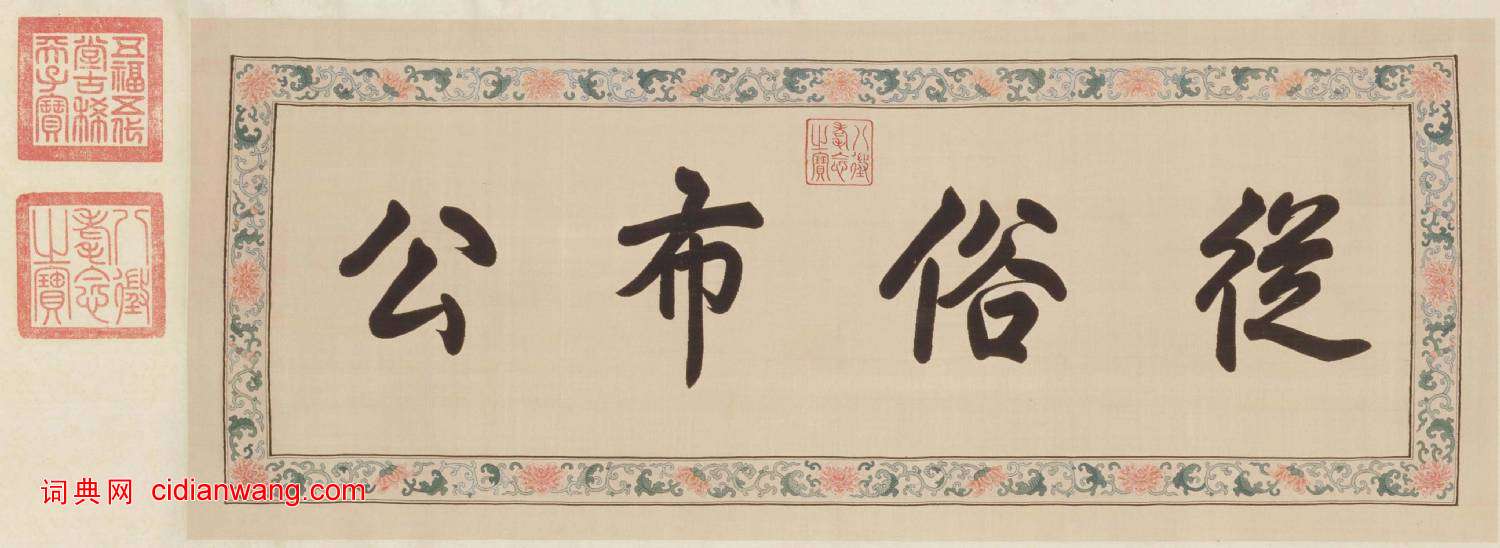 從俗布公
八徵
耄念
之寶
五福五代
堂古稀
天子寶
八徵
耄念
之寶
词典网 cidianwang.com